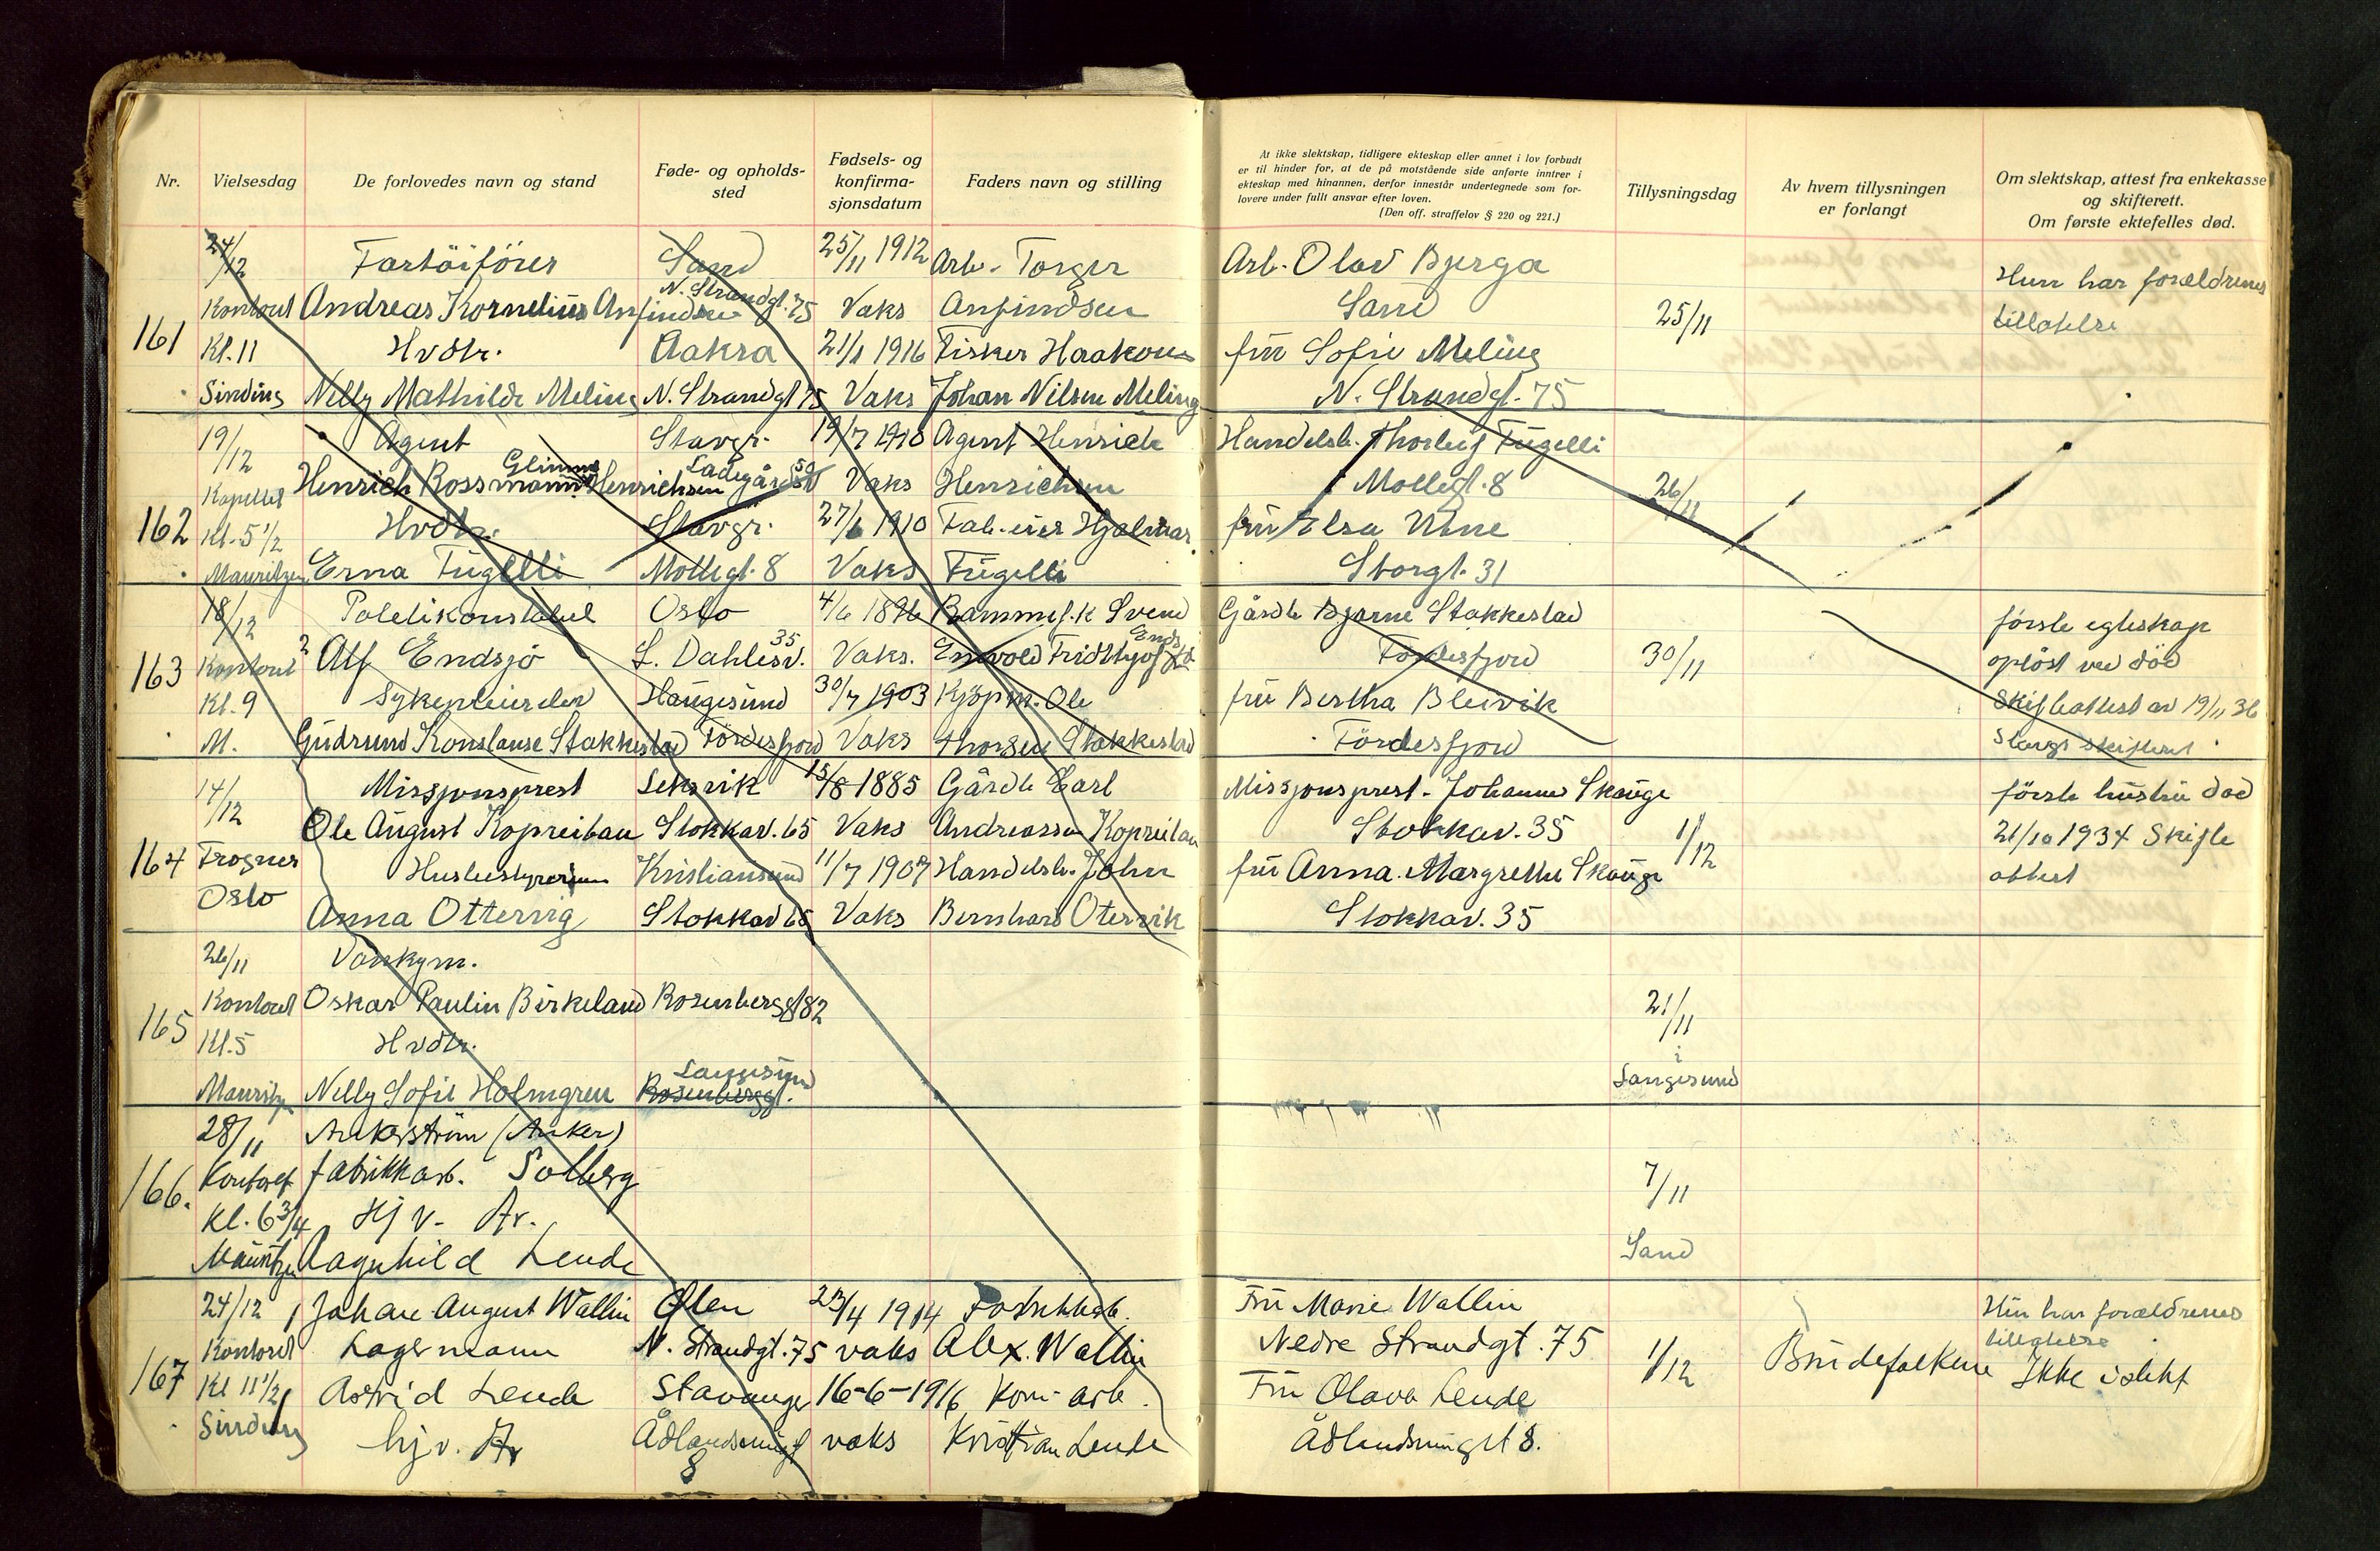 Nr. Vielsesdag De forlovedes navn og stand Føde- og opholds-sted Fødsels- og konfirma-sjonsdatum Faders navn og stilling
At ikke slektskap, tidligere ekteskap eller annet i lov forbudt
er til hinder for, at de på motstående side anførte inntrer i
ekteskap med hinannen, derfor innestår undertegnede som for-
lovere under fullt ansvar efter loven.
(Den off. straffelov § 220 og 221.)
Tillysningsdag
Av hvem tillysningen er forlangt
Om slektskap, attest fra enkekasse
og skifterett.
Om første ektefelles død.
161
24/12 Fartöiförer Sand 25/11 1912 Arb. Torger Arb. Olav Bjerga Hun har forældrenes
Kontoret Andreas Kornelius Anfindsen N. Strandgt. 75 Vaks Anfindsen Sand 25/11 tillatelse
Kl. 11 Hvdtr. Aakra 21/1 1916 Fisker Haakon fru Sofie Meling
Sinding Nelly Mathilde Meling N. Strandgt 75 Vaks Johan Nilsen Meling N. Strandgt. 75
162
19/12 Agent Stavgr. 19/7 1910 Agent Henrich Handelsb. Thorleif Fugelli
Kapellet Henrich Rossmann Glimme Henrichsen Ladegårdst 50 Vaks Henrichsen Mollegt. 8 26/11
Kl. 5 1/2 Hvdtr. Stavgr. 27/6 1910 Fab. eier Hjalmar fru Elsa Utne
Mauritzen Erna Fugelli Mollegt. 8 Vaks Fugelli Storgt. 31
163
18/12 Politikonstabel Oslo 4/6 1896 Svend Gårdb Bjarne Stakkestad första egteskap
Kontoret Alf Endsjö L. Dahlesv. 35 Vaks. Fridthjof Fördesfjord 30/11 oplöst ved död
Kl. 9 Sykepleierske Haugesund 30/7 1903 Kjöpm. Ole fru Bertha Bleivik Skifteattest av 19/11 36
M. Gudrund Konstanse Stakkestad Fördesfjord Vaks Thorsen Stakkestad Fördesfjord Stavgr skifteret
164
14/12 Missjonsprest Leksvik 15/8 1885 Gårdb Earl Missjonsprest. Johannes Skauge förste hustru död
Ole August Kopreitan Stokkav. 65 Vaks Andreassen Kopreitan Stokkav. 35 1/12 21/10 1934 Skifte
Frogner Husbestyrerinne Kristiansund 11/7 1907 Handelsb. Johan fru Anna Margrethe Skauge attest
Oslo Anna Ottervig Stokkav 65 Vaks Bernhard Otervik Stokkav. 35
165
26/11 Vaskym.
Kontoret Oskar Paulin Birkeland Rosenberggt 82 21/11
Kl. 5 Hvdtr. i
Mauritzen Nelly Sofie Holmgren Langesund Rosenberggt. Langesund
166.
28/11 Ankerström (Anker)
Kontoret fabrikkarb. Solberg 7/11
Kl. 6 3/4 Hj v. Ar.
Mauritzen Ragnhild Lende Sand
167
24/12 Johan August Wallin Ølen 23/4 1914 Fabrikkarb. Fru Marie Wallin Hun har forældrenes
Kontoret Lagermann N. Strandgt. 75 vaks Alex. Wallin Nedre Strandgt. 75 1/12 tillatelse
Kl 11 1/2 Astrid Lende Stavanger 16-6-1916 Kom. arb. Fru Olava Lende Brudefolkene Ikke i slekt
Sinding hjv. Ar Ådlandsmingt 8 vaks Kristian Lende Ådlandsmingt 8.